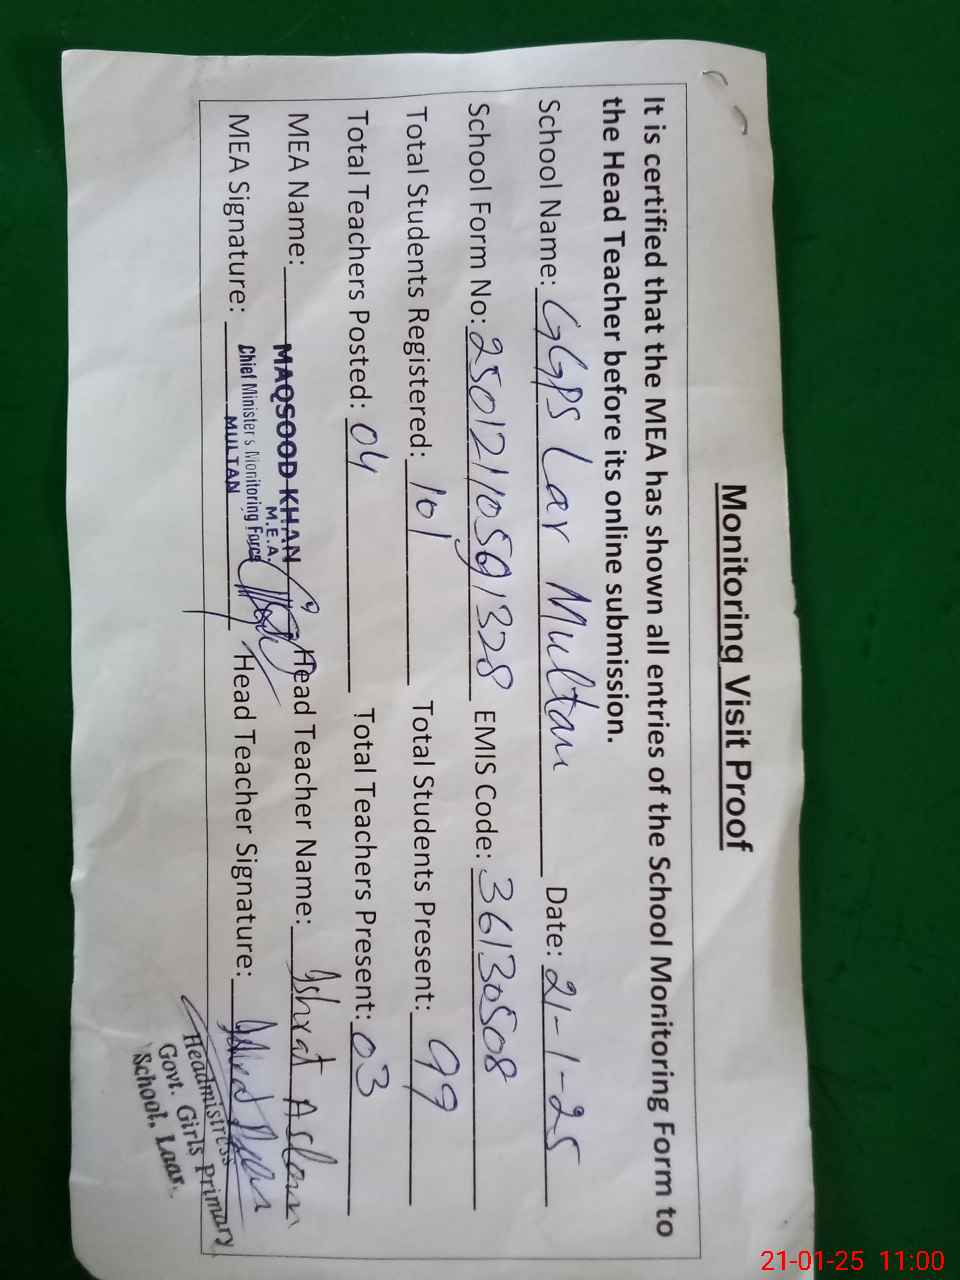 Monitoring Visit Proof
It is certified that the MEA has shown all entries of the School Monitoring Form to
the Head Teacher before its online submission.
School Name: GGPS Lar Multan Date: 21-1-25
School Form No: 25012110591328 EMIS Code: 36130508
Total Students Registered: 101 Total Students Present: 99
Total Teachers Posted: 04 Total Teachers Present: 03
MEA Name: MAQSOOD KHAN Head Teacher Name: Ishrat Aslam
M.E.A.
Chief Minister's Monitoring Force
MULTAN
MEA Signature: Head Teacher Signature:
Headmistress
Govt. Girls Primary
School, Laar.
21-01-25 11:00